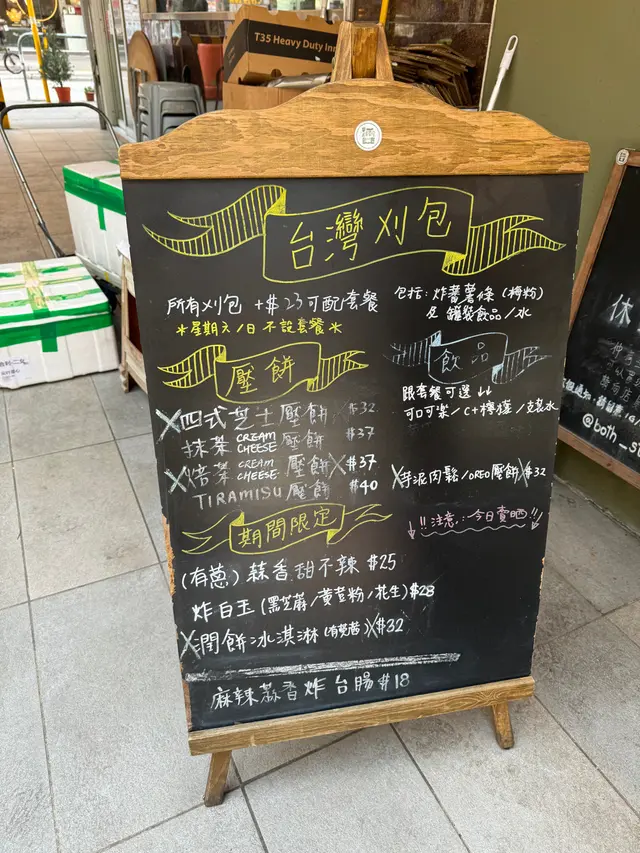 T35 Heavy Duty Inn
台灣刈包
所有刈包 +$23可配套餐
包括: 炸蕃薯條 (梅粉)
及 罐裝飲品/水
*星期六/日 不設套餐*
壓餅
飲品
跟套餐可選↓↓
可可樂/C+檸檬/支裝水
X四式芝士壓餅X $32
抹茶 CREAM CHEESE 壓餅 $37
X焙茶 CREAM CHEESE 壓餅X $37
TIRAMISU 壓餅 $40
X芋泥肉鬆/OREO壓餅X $32
↓!!注意:今日賣晒!!↓
期間限定
(有蔥) 蒜香甜不辣 $25
炸白玉 (黑芝麻/黃荳粉/花生) $28
X潤餅冰淇淋 (有芫茜)X $32
麻辣蒜香炸台腸 $18
休
@both_st